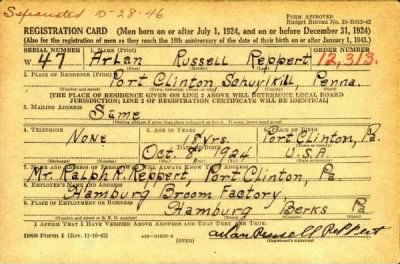 Separated 10-28-46
FORM APPROVED
Budget Bureau No. 33-R013-42
REGISTRATION CARD—(Men born on or after July 1, 1924, and on or before December 31, 1924)
(Also for the registration of men as they reach the 18th anniversary of the date of their birth on or after January 1, 1943.)
SERIAL NUMBER 1. NAME (Print) ORDER NUMBER
W. 47 Arlan Russell Reppert 12,313.
(First) (Middle) (Last)
2. PLACE OF RESIDENCE (Print)
Port Clinton Schuylkill Penna.
[THE PLACE OF RESIDENCE GIVEN ON LINE 2 ABOVE WILL DETERMINE LOCAL BOARD
JURISDICTION; LINE 2 OF REGISTRATION CERTIFICATE WILL BE IDENTICAL]
3. MAILING ADDRESS
Same
4. TELEPHONE 5. AGE IN YEARS 6. PLACE OF BIRTH
None 18 yrs. Port Clinton, Pa.
DATE OF BIRTH
Oct. 8, 1924 U.S.A
7. NAME AND ADDRESS OF PERSON WHO WILL ALWAYS KNOW YOUR ADDRESS
Mr. Ralph R. Reppert, Port Clinton, Pa.
8. EMPLOYER'S NAME AND ADDRESS
Hamburg Broom Factory
9. PLACE OF EMPLOYMENT OR BUSINESS
Hamburg Berks Pa
I AFFIRM THAT I HAVE VERIFIED ABOVE ANSWERS AND THAT THEY ARE TRUE.
DSS Form 1 (Rev. 11-16-42) (OVER) Arlan Russell Reppert
(Registrant's signature)